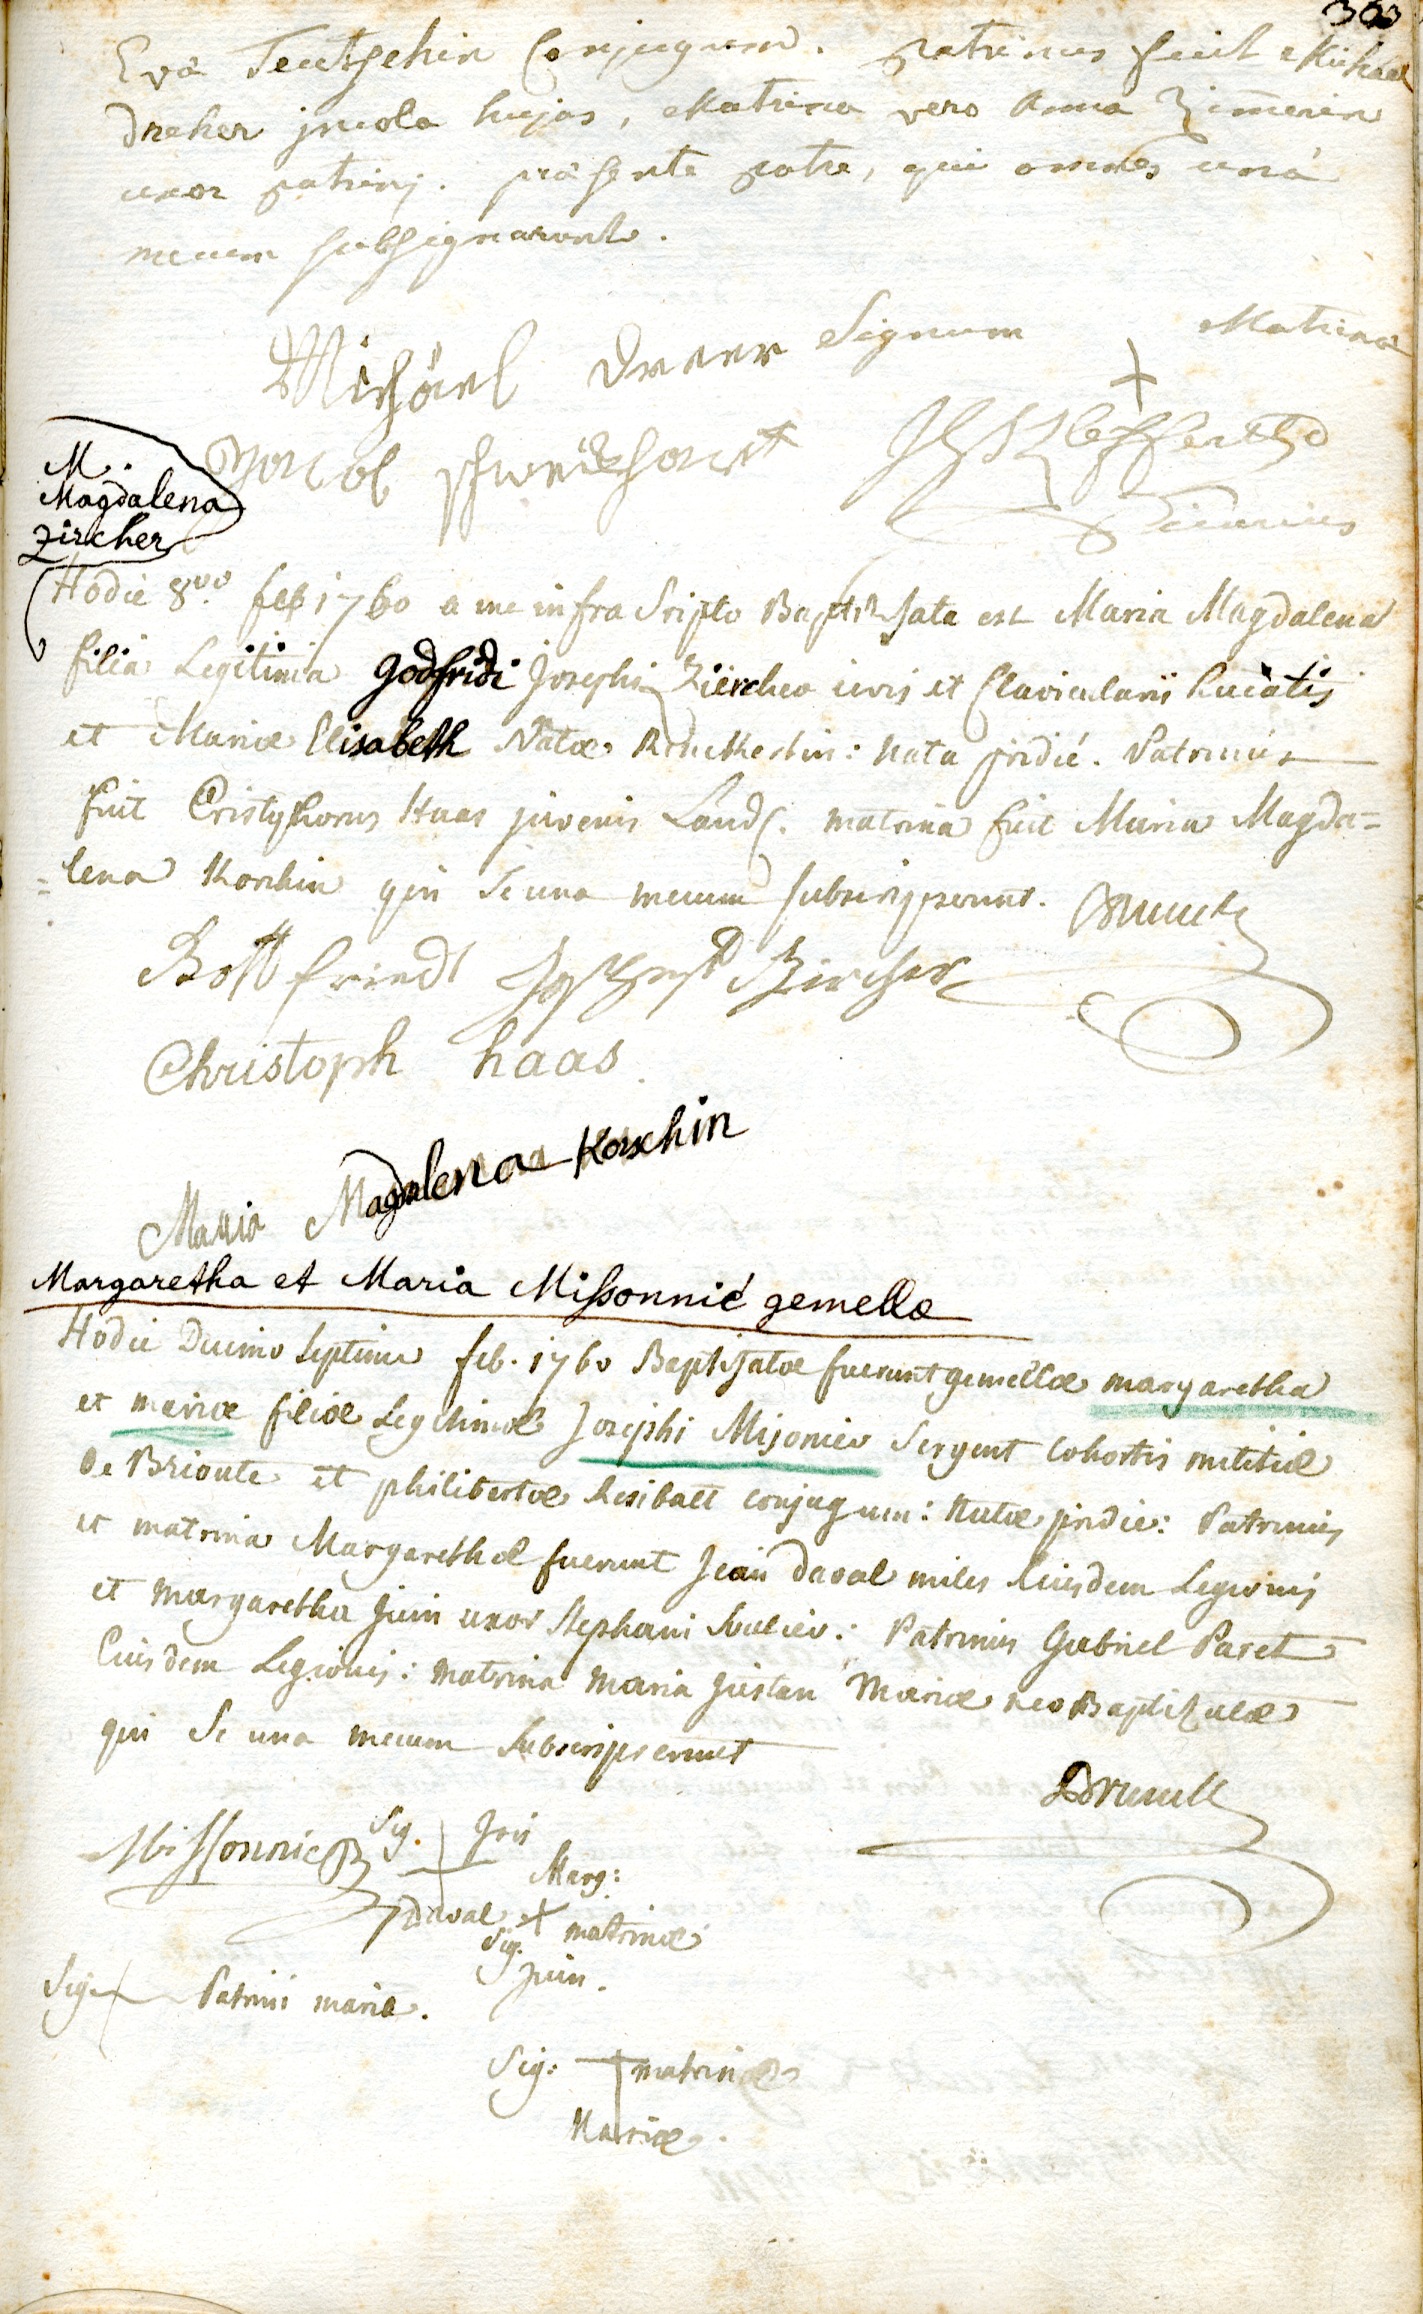 363
Eva Teutschin Conjugum. patrinus fuit Michael
dreher incola hujas, Matrina vero Anna Zimerin
uxor patrinj. præsente patre, qui omnes unà
mecum subsignarunt.
Michael dreer Signum Matrinæ
+
M.
Magdalena
Zircher
Hodie 8vo feb 1760 a me infra Sripto Baptisata est Maria Magdalena
filia Legitima Godfridi Josephi Zürcher civis et Clavicularii huiatis
et Mariæ Elisabeth Natæ : Nata pridié. Patrinus
fuit Cristophorus Haas juvenis Land. matrina fuit Maria Magda=
=lena Korchin qui Se una mecum subscripserunt. Brunck
Gottfriedt Joseph Zircher
Christoph haas
Maria Magdalena Korschin
Margaretha et Maria Missonnié gemellæ
Hodie Decimo Septimo feb. 1760 Baptisatæ fuerunt gemellæ margaretha
et mariæ filiæ Legitimæ Josephi Mijonier Sergent Cohortis militiæ
De Brionte et philibertæ Resibalt conjugum: Natæ pridie: Patrinus
et matrina Margarethæ fuerunt Jean daval miles Eiusdem Legionis
et margaretha Juin uxor Stephani : Patrinus Gabriel Paret
Eiusdem Legionis: matrina maria Justan Mariæ neo Baptizatæ
qui Se una mecum Subscripserunt
Brunck
Missonnier Sig. + Jois
Daval
Marg:
+ matrinæ
Sig.
Juin.
Sig. + Patrini mariæ.
Sig: + matrinæ
Mariæ.